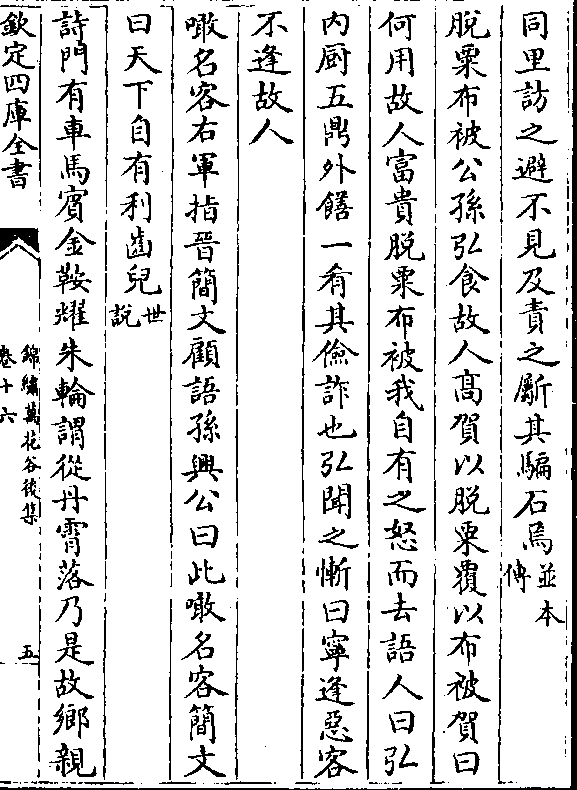 同里訪之避不見及責之斸其騙石焉並本傳
脱粟布被公孫弘食故人髙賀以脱粟覆以布被賀曰
何用故人富貴脱粟布被我自有之怒而去語人曰弘
内厨五鼎外饍一肴其儉詐也弘聞之慚曰寧逢惡客
不逢故人
噉名客右軍指晉簡文顧語孫興公曰此噉名客簡文
曰天下自有利齒兒世説
詩門有車馬賓金鞍耀朱輪謂從丹霄落乃是故鄉親
欽定四庫全書
錦繡萬花谷後集
卷十六
五